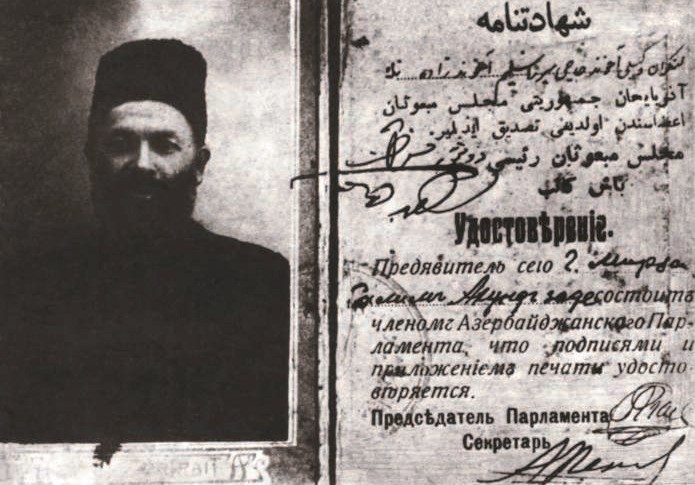 شهادتنامه
لنکران وکیلی آخوند حاجی میرزا سلیم آخوندزاده نك
آذربایجان جمهوریتی مجلس مبعوثان
اعضاسندن اولدیغی تصدیق ایدلیر.
مجلس مبعوثان رئیسی
باش کاتب
Удостовѣренiе.
Предявитель сего г. Мирза
Салимъ Ахундъ заде состоитъ
членомъ Азербайджанскаго Пар-
ламента, что подписями и
приложенiемъ печати удосто-
вѣряется.
Предсѣдатель Парламента
Секретарь